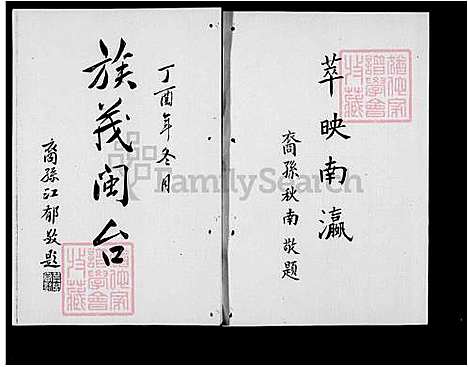 萃映南瀛
裔孫秋南敬題
丁酉年冬月
族茂閩台
裔孫江郁敬題
FamilySearch